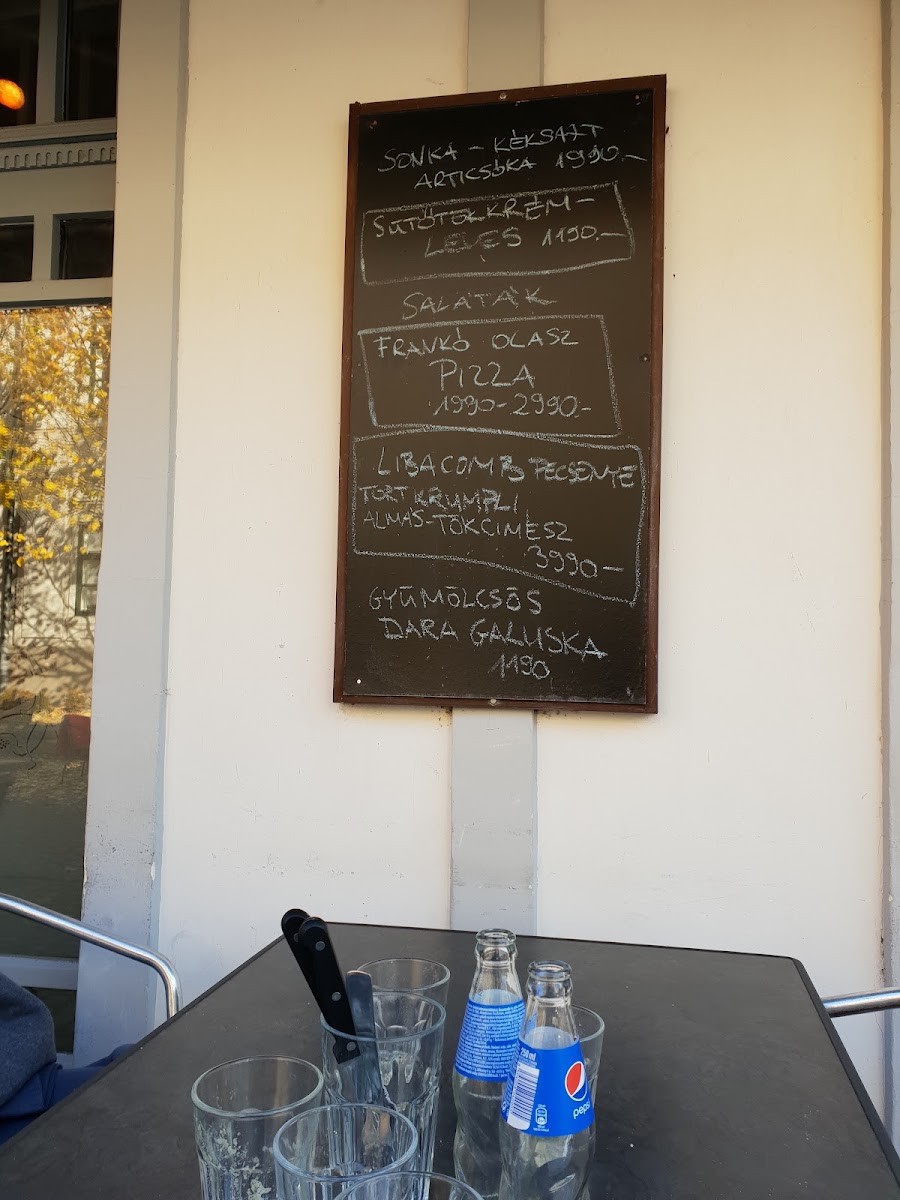 SONKA - KÉKSAJT
ARTICSÓKA 1990.-
SÜTŐTÖKKRÉM-
LEVES 1190.-
SALÁTÁK
FRANKÓ OLASZ
PIZZA
1990-2990.-
LIBACOMB PECSENYE
TÖRT KRUMPLI
ALMÁS-TÖKCIMESZ
3990-
GYÜMÖLCSÖS
DARA GALUSKA
1190
250 ml
pepsi